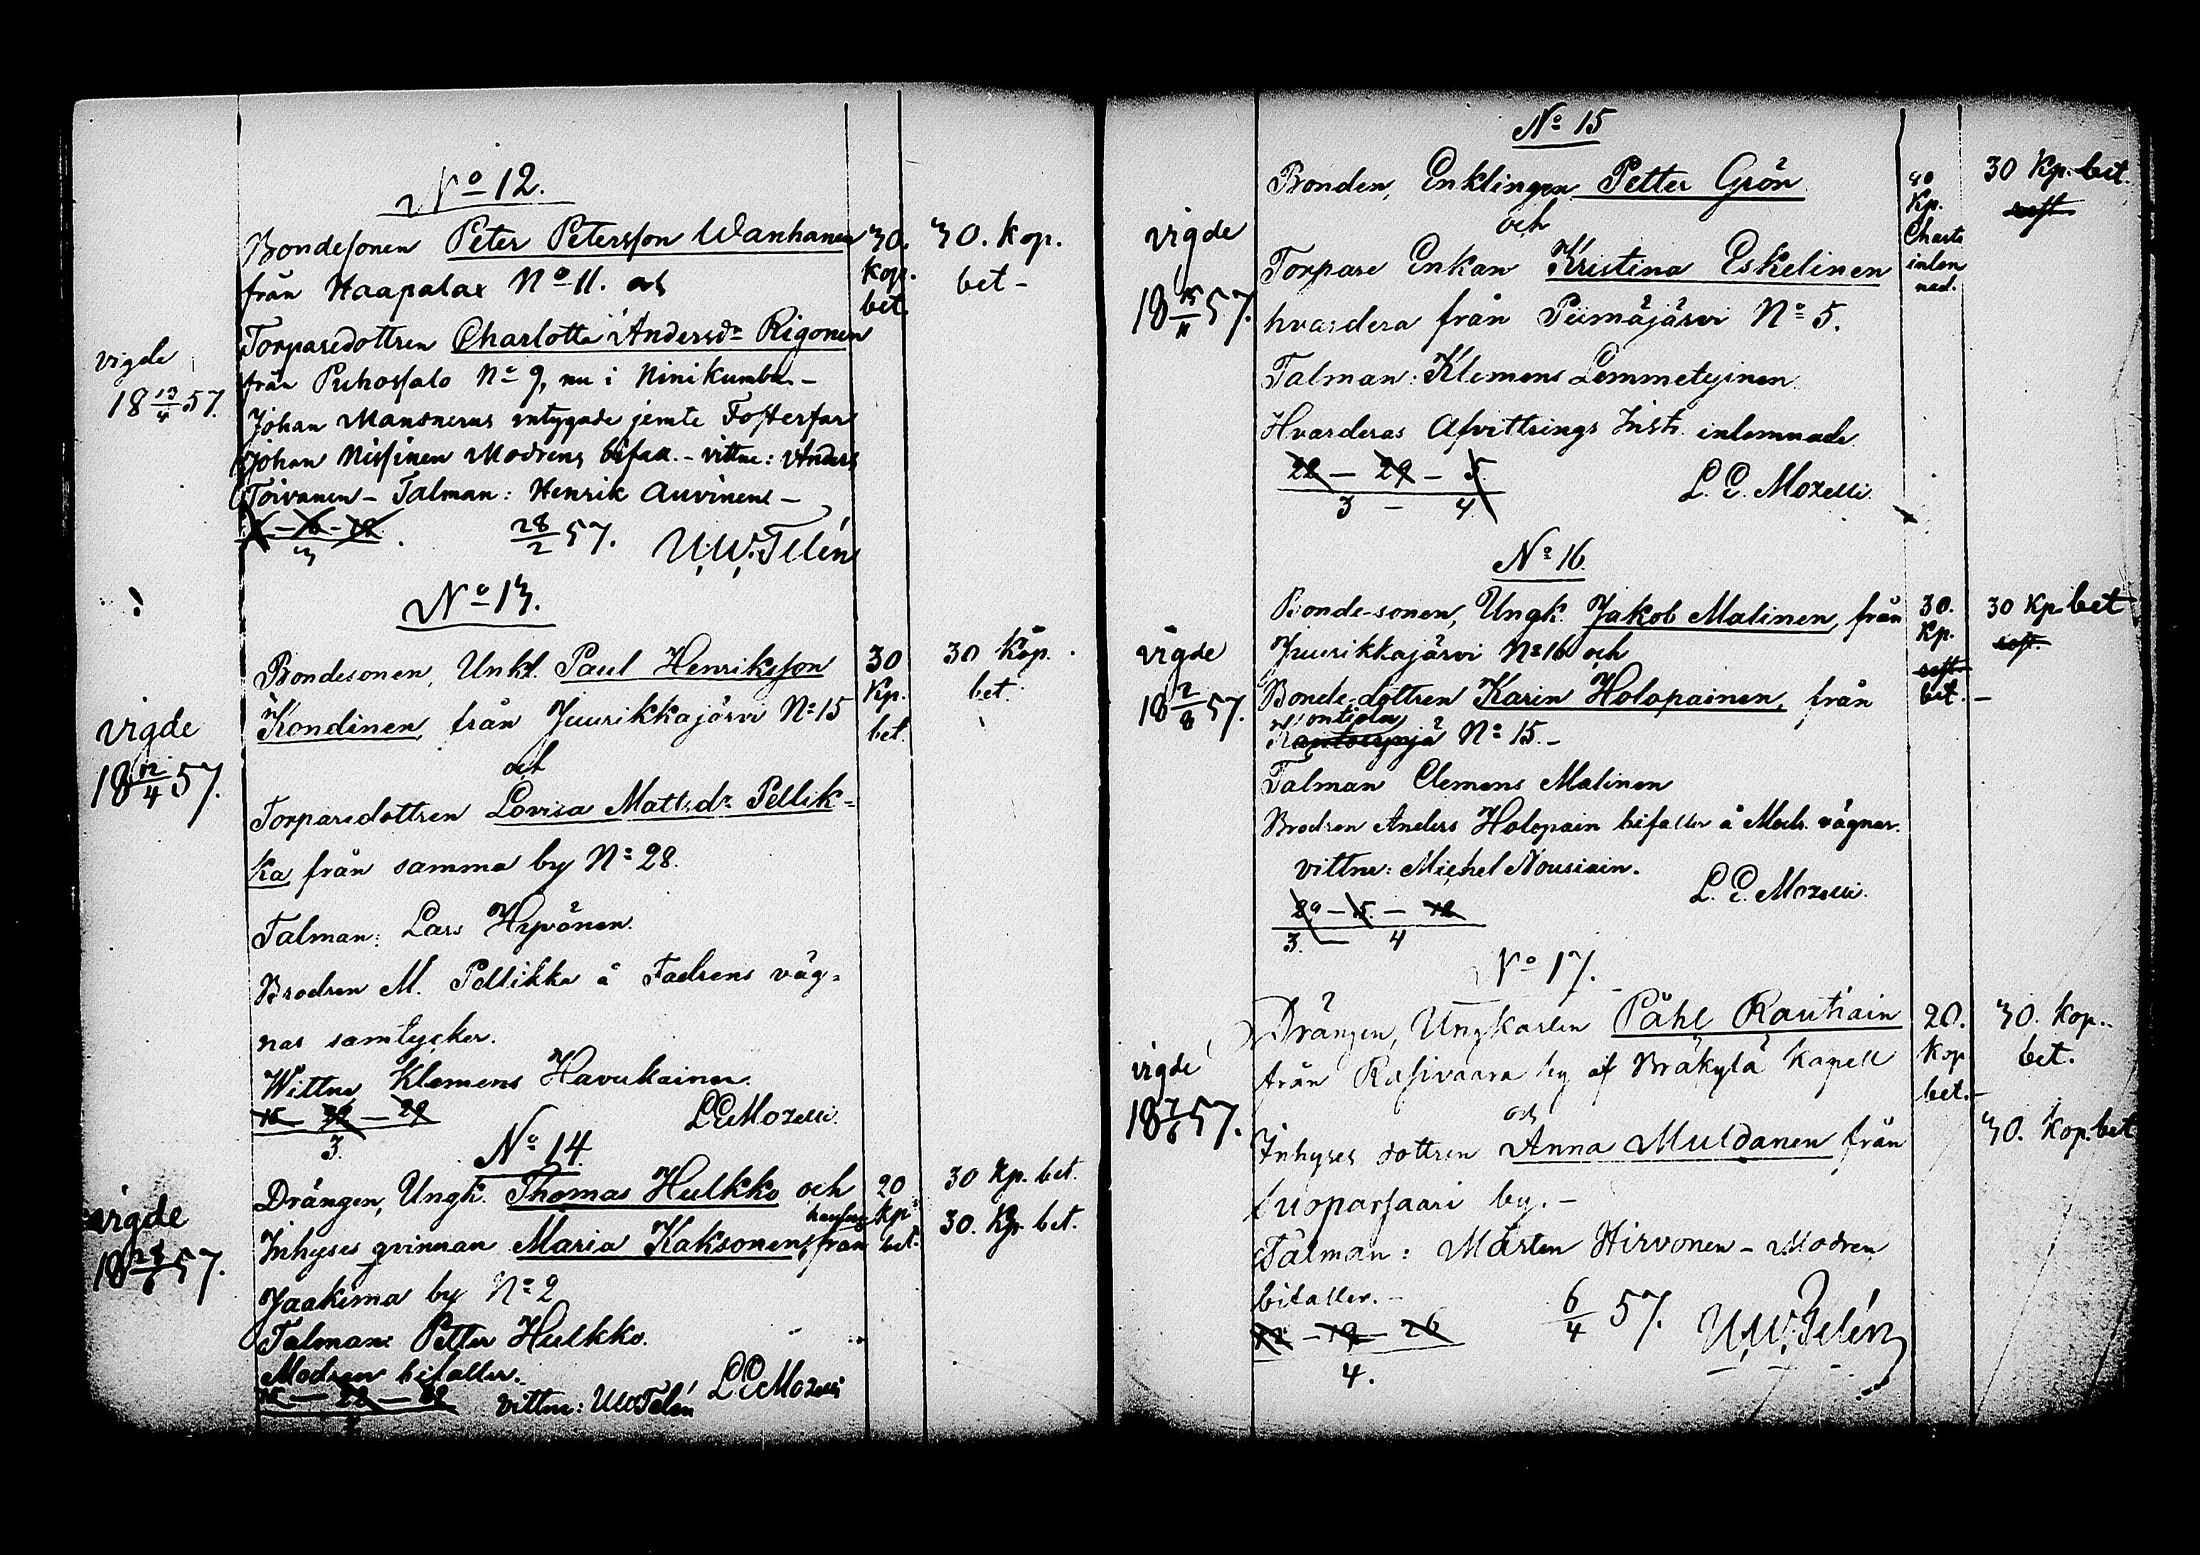 No 12.
Bondesonen Peter Petersson Wanhanen
från Haapalax No 11. och
Torparedottren Charlotta Andersdr Rigonen
från Puhossalo No 9, nu i Ninikumbu -
Johan Mansnerus intygade jemte Fosterfar
Johan Nissinen Modrens bifall. - vittne: Anders
Toivanen - Talman: Henrik Auvinen -
3
28/2 57. U.W.Telén
vigde
18 13/4 57.
30.
kop.
bet.
30. kop.
bet -
No 13.
Bondesonen, Unkl. Paul Henriksson
Kondinen, från Juurikkajärvi No 15
och
Torparedottren Lovisa Mattsdr Pellik=
ka från samma by No 28.
Talman: Lars Hyvönen.
Brodren M. Pellikka å Fadrens väg=
nar samtycker.
Wittne Klemens Havukainen.
15 - 22 - 29
3.
L E Mozelli.
vigde
18 12/4 57.
30
Kp.
bet.
30 Kop.
bet
No 14.
Drängen, Ungk. Thomas Hulkko och
Inhyses qvinnan Maria Kaksonen, från
Jaakima by No 2
Talman: Petter Hulkko.
Modren bifaller.
15 - 22 - 29
vittne: UWTelén L E Mozelli
vigde
18 57.
20
Kp
bet.
30 Kp. bet.
30. Kp. bet.
No 15
Bonden, Enklingen Petter Grön
och
Torpare Enkan Kristina Eskelinen
hvardera från Piimäjärvi No 5.
Talman: Klemens Lemmetyinen.
Hvarderas Afvittrings Instr. inlemnade.
22 - 29 - 5
3 - 4
L. E. Mozelli.
vigde
18 15/11 57.
40
Kp.
Charta
inlem
nad.
30 Kp. bet.
rest.
No 16.
Bonde-sonen, Ungk. Jakob Malinen, från
Juurikkajärvi No 16 och
Bonde-dottren Karin Holopainen, från
Kontiola
No 15. -
Talman Clemens Malinen
Brodren Anders Holopain bifaller å Modr. vägnar.
vittne: Michel Nousiain.
29 - 5. - 12
3. - 4
L. E. Mozelli.
vigde
18 2/8 57.
30.
Kp.
rest.
bet. -
30 Kp bet
rest.
No 17.
Drängen, Ungkarlen Påhl Rautiain
från Rasivaara by af Bräkylä Kapell
och
Inhyses dottren Anna Muldanen från
Luoparsaari by. -
Talman: Mårten Hirvonen - Modren
bifaller. -
12 - 19 - 26
4.
6/4 57. U.W.Telén
vigde
18 7/6 57.
20.
Kop
bet. -
30. Kop.
bet.
30. Kop. bet